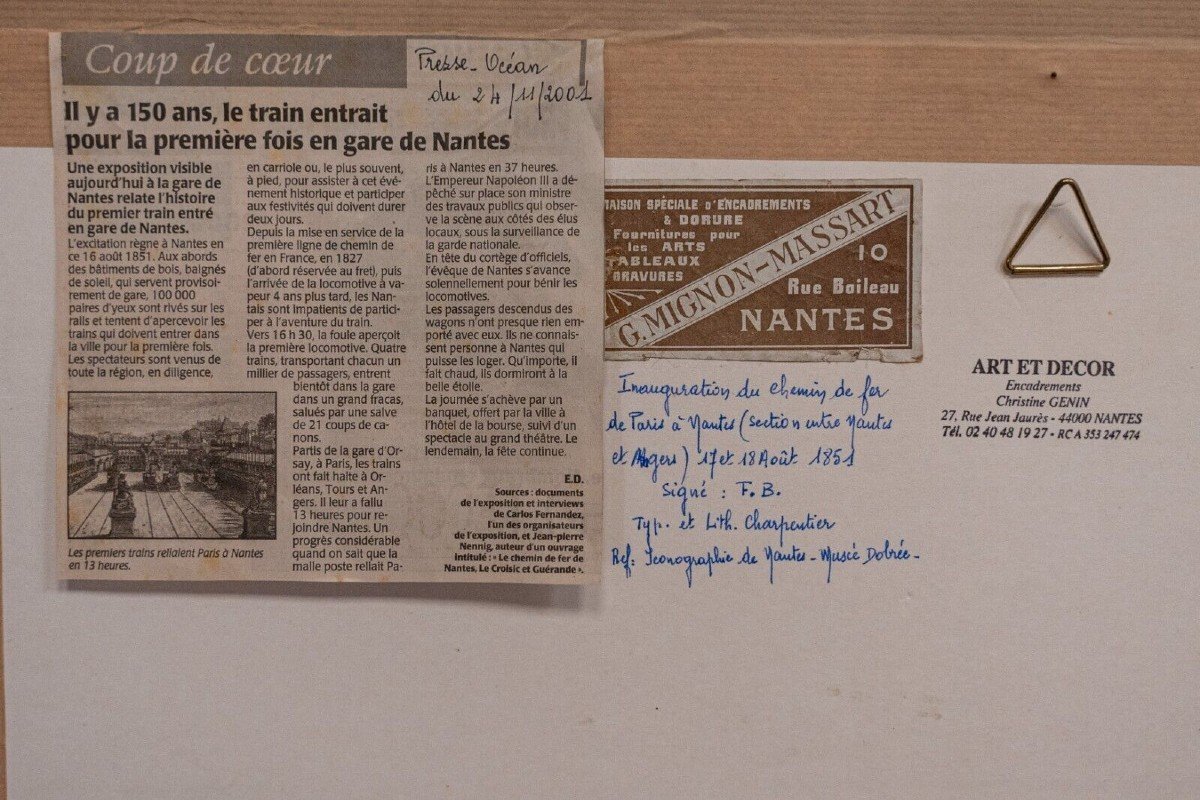 Coup de cœur
Presse-Océan
du 24/11/2001
Il y a 150 ans, le train entrait
pour la première fois en gare de Nantes
Une exposition visible
aujourd'hui à la gare de
Nantes relate l'histoire
du premier train entré
en gare de Nantes.
L'excitation règne à Nantes en
ce 16 août 1851. Aux abords
des bâtiments de bois, baignés
de soleil, qui servent provisoi-
rement de gare, 100 000
paires d'yeux sont rivés sur les
rails et tentent d'apercevoir les
trains qui doivent entrer dans
la ville pour la première fois.
Les spectateurs sont venus de
toute la région, en diligence,
en carriole ou, le plus souvent,
à pied, pour assister à cet évé-
nement historique et participer
aux festivités qui doivent durer
deux jours.
Depuis la mise en service de la
première ligne de chemin de
fer en France, en 1827
(d'abord réservée au fret), puis
l'arrivée de la locomotive à va-
peur 4 ans plus tard, les Nan-
tais sont impatients de partici-
per à l'aventure du train.
Vers 16 h 30, la foule aperçoit
la première locomotive. Quatre
trains, transportant chacun un
millier de passagers, entrent
bientôt dans la gare
dans un grand fracas,
salués par une salve
de 21 coups de ca-
nons.
Partis de la gare d'Or-
say, à Paris, les trains
ont fait halte à Or-
léans, Tours et An-
gers. Il leur a fallu
13 heures pour re-
joindre Nantes. Un
progrès considérable
quand on sait que la
malle poste reliait Pa-
ris à Nantes en 37 heures.
L'Empereur Napoléon III a dé-
pêché sur place son ministre
des travaux publics qui obser-
ve la scène aux côtés des élus
locaux, sous la surveillance de
la garde nationale.
En tête du cortège d'officiels,
l'évêque de Nantes s'avance
solennellement pour bénir les
locomotives.
Les passagers descendus des
wagons n'ont presque rien em-
porté avec eux. Ils ne connais-
sent personne à Nantes qui
puisse les loger. Qu'importe, il
fait chaud, ils dormiront à la
belle étoile.
La journée s'achève par un
banquet, offert par la ville à
l'hôtel de la bourse, suivi d'un
spectacle au grand théâtre. Le
lendemain, la fête continue.
E.D.
Sources : documents
de l'exposition et interviews
de Carlos Fernandez,
l'un des organisateurs
de l'exposition, et Jean-pierre
Nennig, auteur d'un ouvrage
intitulé : « Le chemin de fer de
Nantes, Le Croisic et Guérande ».
Les premiers trains reliaient Paris à Nantes
en 13 heures.
MAISON SPÉCIALE D'ENCADREMENTS
& DORURE
Fournitures pour
les ARTS
TABLEAUX
GRAVURES
G. MIGNON-MASSART
10
Rue Boileau
NANTES
Inauguration du chemin de fer
de Paris à Nantes (section entre Nantes
et Angers) 17 et 18 Août 1851
Signé : F. B.
Typ. et Lith. Charpentier
Ref: Iconographie de Nantes - Musée Dobrée -
ART ET DECOR
Encadrements
Christine GENIN
27, Rue Jean Jaurès - 44000 NANTES
Tél. 02 40 48 19 27 - RC A 353 247 474